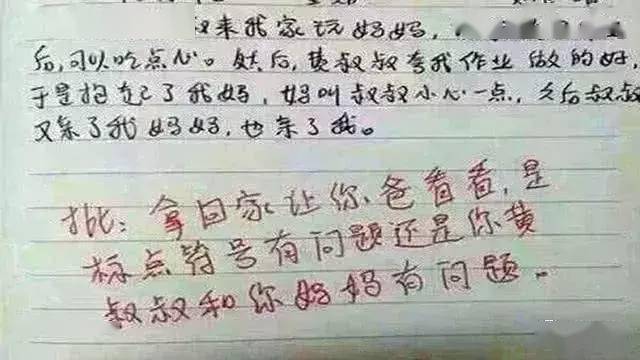 来我家玩妈妈,
后,可以吃点心。然后,黄叔叔夸我作业做的好,
于是抱起了我妈,妈叫叔叔小心一点,之后叔叔
又亲了我妈妈,也亲了我。
批:拿回家让你爸看看,是
标点符号有问题还是你黄
叔叔和你妈妈有问题。